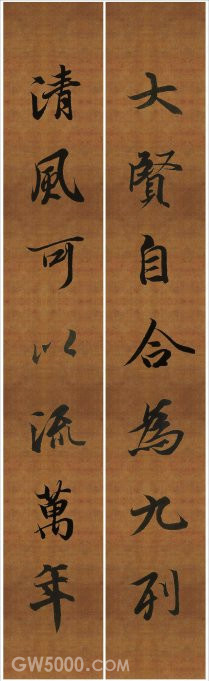 大賢自合為九列
清風可以流萬年
GW5000.com